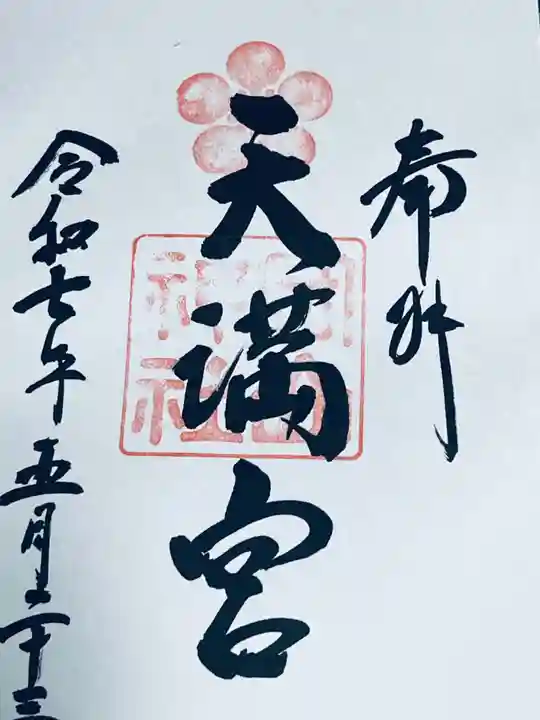 奉拝
天満宮
令和七年五月二十三
神社